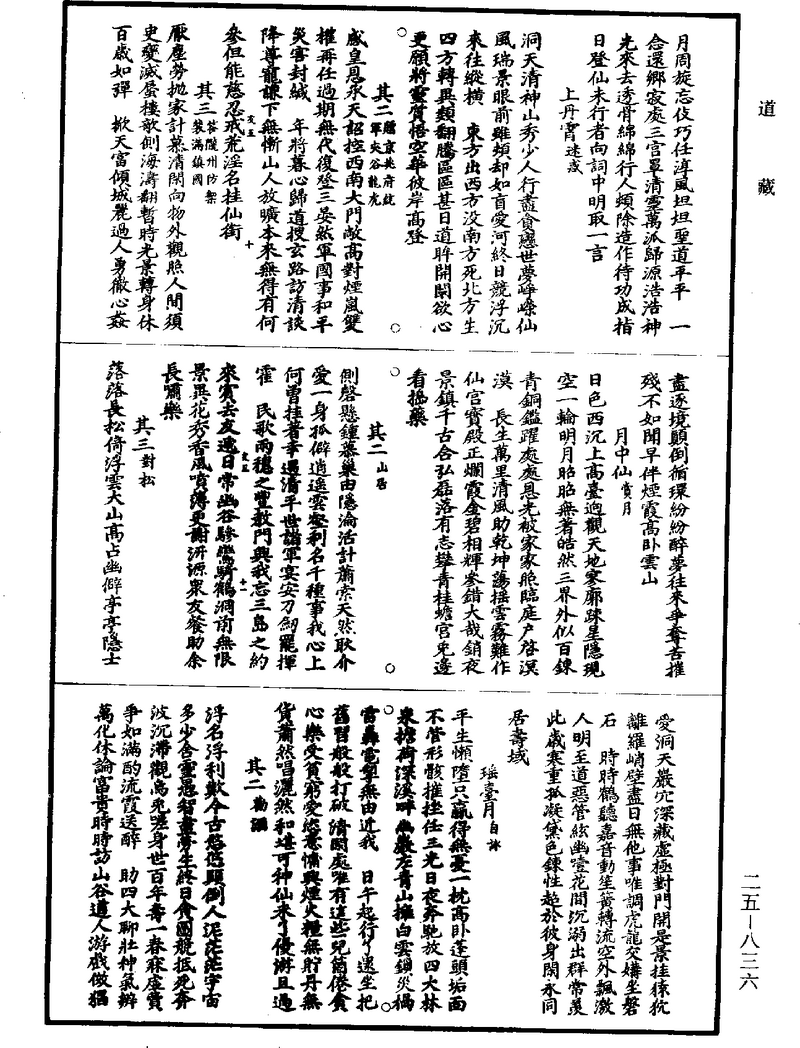 道藏
月周旋忘伎巧任淳風坦坦聖道平平　一
念還鄉寂處三宫罩清靈萬派歸源浩浩神
光來去透骨綿綿行人頻除造作待功成指
日登仙未行者向詞中明取一言
上丹霄迷惑
洞天清神山秀少人行盡貪戀世夢崢嶸仙
風瑞景眼前雖頻却如盲愛河終日競浮沉
來往縱横　東方出西方没南方死北方生
四方轉異類翻騰區區甚日道眸開闡欲心
更願將靈質悟空華彼岸高登
其二
感皇恩承天詔控西南大門敵高對煙嵐雙
權再任過期無代復登三晏然軍國事和平
災害封緘　年將暮心歸道搜玄路訪清談
降尊寵謙下無慚山人放曠本來無得有何
參但能慈忍戒荒淫名挂仙銜
其三
厭塵勞抛家計慕清閑向物外觀照人間須
史變滅蜃樓欹側海濤翻暫時光景轉身休
百歲如彈　掀天富傾城麗過人勇徹心姦
盡逐境顛倒循環紛紛醉夢往來爭奪苦摧
殘不如聞早伴煙霞高卧雲山
月中仙賞月
日色西沉上高臺迥觀天地寥廓踈星隱現
空一輪明月昭昭無著皓然三界外似百鍊
青銅鑑躍處處恩光被家家照臨庭户啓溟
漠　長生萬里清風助乾坤蕩摇雲霧難作
仙宫寳殿正爛霞金碧相輝參錯大哉銷夜
景鎮千古合弘磊落有志攀青桂蟾宫兔邊
看搗藥
其二山居
側磬懸鍾慕巢由隱淪活計蕭索天然耿介
愛一身孤僻逍遥雲壑利名千種事我心上
何曾挂著幸遇清平世諸軍宴安刀劒罷揮
霍　民歌兩穗之豐教門興我忘三島之約
來賓去友遞日常幽谷驂鸞騎鶴洞前無限
景異花秀香風噴薄更謝汧源衆友餐助余
長嘯樂
其三對松
落落長松倚浮雲大山高占幽僻亭亭隱士
愛洞天巖穴深藏虚極對門開是景挂猿狖
離羅峭壁盡日無他事唯調虎龍交媾坐磐
石　時時鶴聽嘉音動笙簧轉流空外飄激
人明至道惡管絃幽噎花間沉溺出群常羡
此歲寒重孤凝黛色鍊性超於彼身閑永同
居壽域
瑶臺月自詠
平生懶墮只贏得無憂一枕高卧蓬頭垢面
不管形骸摧挫任三光日夜奔馳放四大林
泉擔荷深溪畔幽巖左青山擁白雲鎖災禍
雷轟電掣無由近我　日午起行了還坐把
舊習般般打破清閑處唯有這些兒箇倦貪
心樂受貧窮愛悠意慵興煙火糧無貯丹無
貨蕭然唱灑然和堪可神仙來了優游且過
其二
浮名浮利歎今古悠悠顛倒人泥茫茫宇宙
多少含靈愚智盡勞生終日貪圖競抵死奔
波沉滯觀烏兔嗟身世百年壽一春寐虚費
爭如滿酌流霞送醉　助四大聊壯神氣辨
萬化休論富貴時時訪山谷道人游戲倣猖
二五－八三六